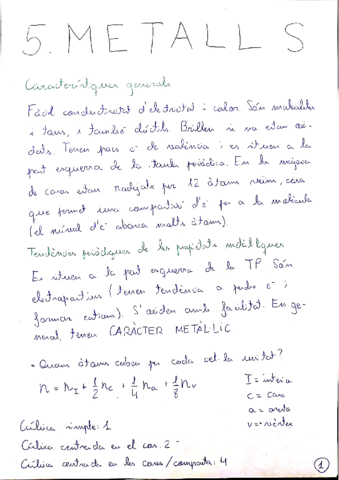 5. METALLS
Característiques generals
Fàcil conductivitat d'electricitat i calor. Són maleables
i tous, i també dúctils. Brillen si no estan oxi-
dats. Tenen pocs e⁻ de valència i es situen a la
part esquerra de la taula periòdica. En la majoria
de casos estan rodejats per 12 àtoms veïns, cosa
que permet una compartició d'e⁻ per a la molècula
(el núvol d'e⁻ abarca molts àtoms).
Tendències periòdiques de les propietats metàl·liques
Es situen a la part esquerra de la TP. Són
electropositius (tenen tendència a perdre e⁻ i
formar cations). S'oxiden amb facilitat. En ge-
neral, tenen CARÀCTER METÀL·LIC
• Quants àtoms caben per cada cel·la unitat?
n = n_I + 1/2 n_c + 1/4 n_a + 1/8 n_v
I = interior
c = cara
a = aresta
v = vèrtex
Cúbica simple: 1
Cúbica centrada en el cos: 2
Cúbica centrada en les cares/compacta: 4
1